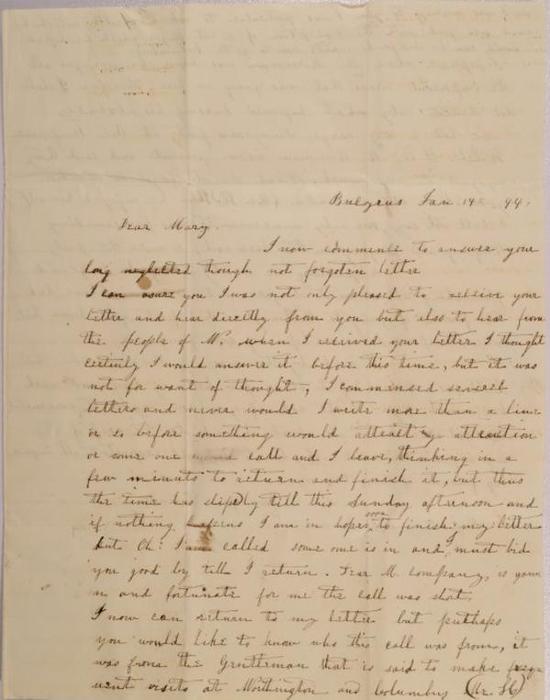 Jan 14 44.
Dear Mary.
I now commence to answer your
long neglected though not forgotten letter
I can asure you I was not only pleased to receive your
letter and hear directly from you but also to hear from
the people of W. when I received your letter I thought
certinly I would answer it before this time, but it was
not for want of thought, I commensed severel
letters and never would I write more than a line
or so before something would attract my attention
or some one would call and I leave, thinking in a
few minuts to return and finish it, but thus
the time has slip'd by till this Sunday afternoon and
if nothing I am in hopes soon to finish my letter
but Oh! I am called some one is in and I must bid
you good by till I return. Dear M. company is gone
n and fortunate for me the call was short.
I now can return to my letter but purhaps
you would like to know who this call was from, it
was from the Gentleman that is said to make freq
uent visits at Worthington and Columbus (Mr.